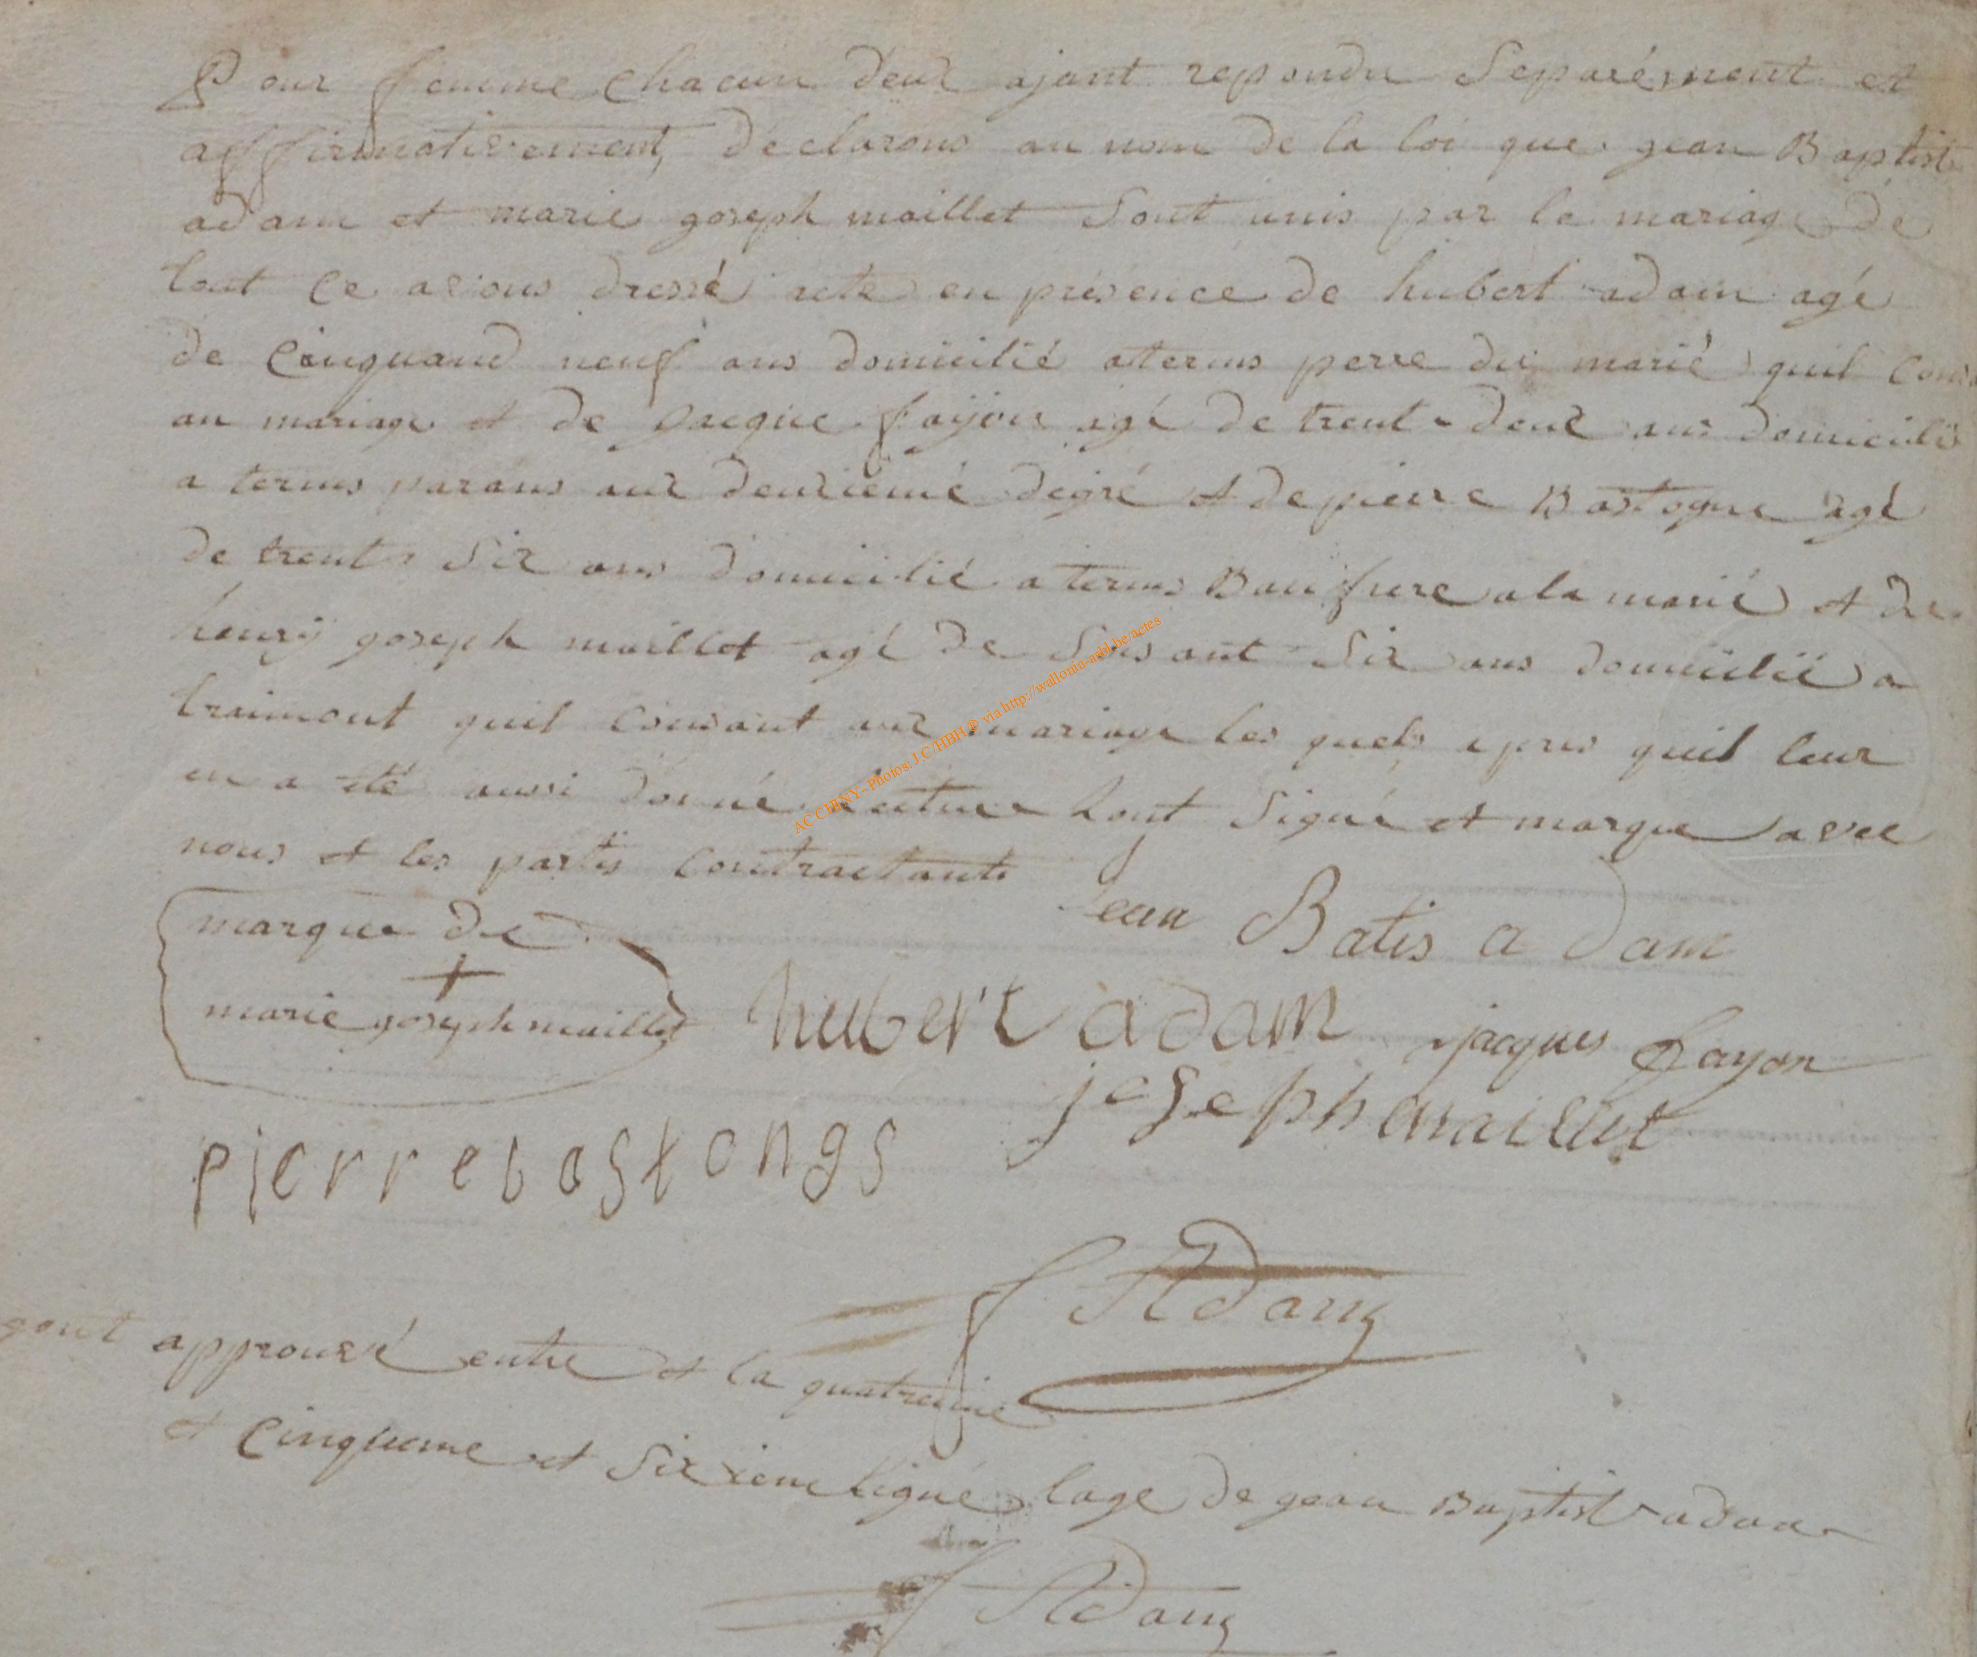 Pour femme chacun deux ajant repondu Separément et
affirmativement, déclarons au nom de la loi que gean Baptist
adam et marie goseph maillet Sont unis par le mariage de
tout ce avons dressé acte en présence de hubert adam agé
de Cinquand neuf ans domicilié a ternus perre du marié quil
au mariage et de Jacque fayon agé de trent deux ans domicilié
a ternus parans aux deuxiemé degré et de pierre Bastogne agé
de trent Six ans domicilié a ternus Baufrere a la marié et de
henry goseph maillet agé de Soisant Six ans domicilié a
traimont quil consant aux mariage les quels apres quil leur
en a été aussi donné lecture hont Signé et marque avec
nous et les partis contractants
marque de
+
marie goseph maillet
jean Batis adam
hubert adam
jacques fayon
joseph maillet
pierre bastongs
f Adam
approuvé entre et la quatreime
et Cinqueme et Sixieme ligne lage de gean Baptist adam
f Adam
ACCHINY - Photos J.C/HBH® via http://wallonia-asbl.be/actes